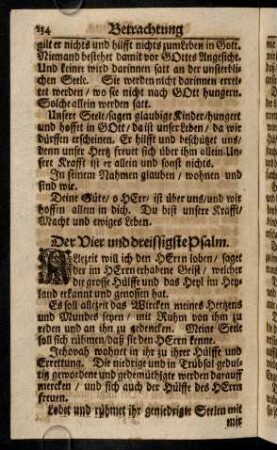 234 Betrachtung
gilt er nichts und hilfft nichts zum Leben in Gott.
Niemand bestehet damit vor GOttes Angesicht.
Und keiner wird darinnen satt an der unsterbli-
chen Seele. Sie werden nicht darinnen erret-
tet werden / wo sie nicht nach GOtt hungern.
Solche allein werden satt.
Unsere Seele / sagen glaubige Kinder / hungert
und hoffet in GOtt / da ist unser Leben / da wir
dürffen erscheinen. Er hilfft und beschützet uns /
denn unser Hertz freuet sich über ihm allein. Un-
sere Krafft ist er allein und sonst nichts.
In seinem Nahmen glauben / wohnen und
sind wir.
Deine Güte / o HErr / ist über uns / und wir
hoffen allein in dich. Du bist unsere Krafft /
Macht und ewiges Leben.
Der Vier und dreissigste Psalm.
ALlezeit will ich den HErrn loben / saget
der im HErrn erhabene Geist / welcher
die grosse Hülffe und das Heyl im Hey-
land erkannt und genossen hat.
Es soll allezeit das Wircken meines Hertzens
und Mundes seyen / mit Ruhm von ihm zu
reden und an ihn zu gedencken. Meine Seele
soll sich rühmen / daß sie den HErrn kenne.
Jehovah wohnet in ihr zu ihrer Hülffe und
Errettung. Die niedrige und in Trübsal gedul-
tig gewordene und gedemüthigte werden darauff
mercken / und sich auch der Hülffe des HErrn
freuen.
Lobet und rühmet ihr geniedrigte Seelen mit
mir